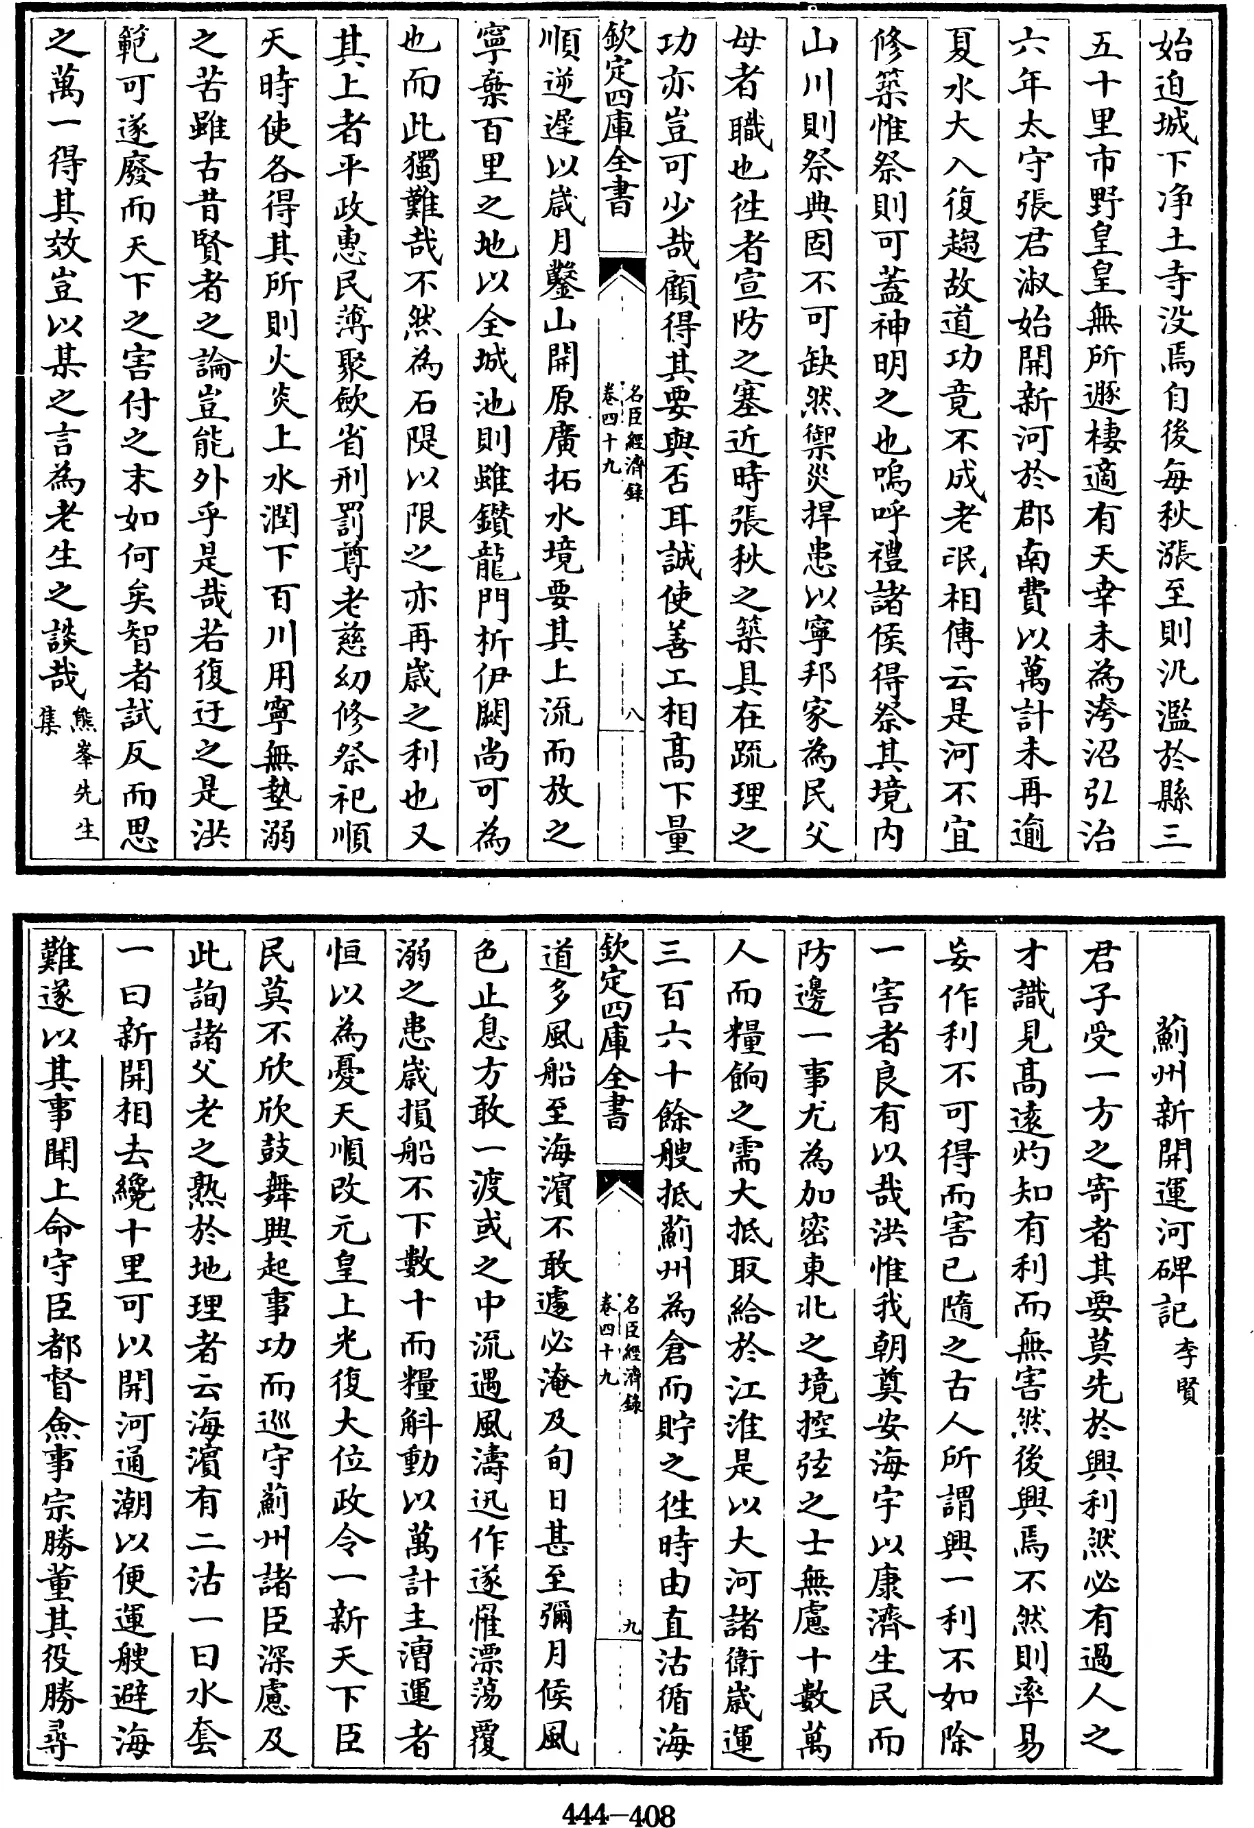 始迫城下净土寺没焉自後每秋漲至則汎濫於縣三
五十里市野皇皇無所遯棲適有天幸未為洿沼弘治
六年太守張君淑始開新河於郡南費以萬計未再逾
夏水大入復趨故道功竟不成老氓相傳云是河不宜
修築惟祭則可蓋神明之也嗚呼禮諸侯得祭其境内
山川則祭典固不可缺然禦災捍患以寧邦家為民父
母者職也徃者宣防之塞近時張秋之築具在疏理之
功亦豈可少哉顧得其要與否耳誠使善工相高下量
欽定四庫全書
名臣經濟錄
卷四十九
八
順逆遲以歲月鑿山開原廣拓水境要其上流而放之
寧棄百里之地以全城池則雖鑽龍門析伊闕尚可為
也而此獨難哉不然為石隄以限之亦再歲之利也又
其上者平政惠民薄聚歛省刑罰尊老慈幼修祭祀順
天時使各得其所則火炎上水潤下百川用寧無墊溺
之苦雖古昔賢者之論豈能外乎是哉若復迂之是洪
範可遂廢而天下之害付之末如何矣智者試反而思
之萬一得其效豈以某之言為老生之談哉 熊峯先生
集
薊州新開運河碑記 李賢
君子受一方之寄者其要莫先於興利然必有過人之
才識見高遠灼知有利而無害然後興焉不然則率易
妄作利不可得而害已隨之古人所謂興一利不如除
一害者良有以哉洪惟我朝奠安海宇以康濟生民而
防邊一事尤為加密東北之境控弦之士無慮十數萬
人而糧餉之需大抵取給於江淮是以大河諸衛歲運
三百六十餘艘抵薊州為倉而貯之徃時由直沽循海
欽定四庫全書
名臣經濟錄
卷四十九
九
道多風船至海濵不敢遽必淹及旬日甚至彌月候風
色止息方敢一渡或之中流遇風濤迅作遂罹漂蕩覆
溺之患歲損船不下數十而糧斛動以萬計主漕運者
恒以為憂天順改元皇上光復大位政令一新天下臣
民莫不欣欣鼓舞興起事功而巡守薊州諸臣深慮及
此詢諸父老之熟於地理者云海濵有二沽一曰水套
一曰新開相去纔十里可以開河通潮以便運艘避海
難遂以其事聞上命守臣都督僉事宗勝董其役勝尋
444-408